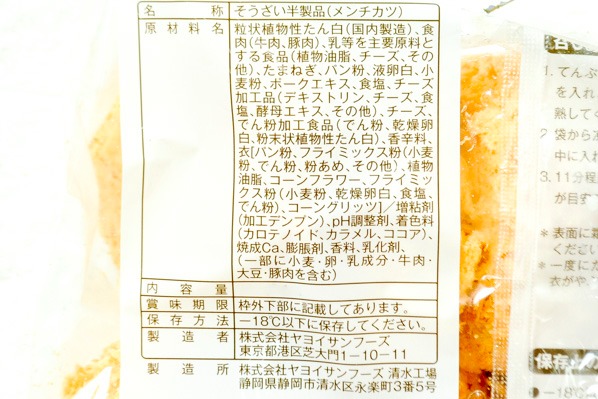 名称 そうざい半製品(メンチカツ)
原材料名 粒状植物性たん白(国内製造)、食
肉(牛肉、豚肉)、乳等を主要原料と
する食品(植物油脂、チーズ、その
他)、たまねぎ、パン粉、液卵白、小
麦粉、ポークエキス、食塩、チーズ
加工品(デキストリン、チーズ、食
塩、酵母エキス、その他)、チーズ、
でん粉加工食品(でん粉、乾燥卵
白、粉末状植物性たん白)、香辛料、
衣[パン粉、フライミックス粉(小麦
粉、でん粉、粉あめ、その他)、植物
油脂、コーンフラワー、フライミッ
クス粉(小麦粉、乾燥卵白、食塩、
でん粉)、コーングリッツ]／増粘剤
(加工デンプン)、pH調整剤、着色料
(カロテノイド、カラメル、ココア)、
焼成Ca、膨脹剤、香料、乳化剤、
(一部に小麦・卵・乳成分・牛肉・
大豆・豚肉を含む)
内容量
賞味期限 枠外下部に記載してあります。
保存方法 −18℃以下に保存してください。
製造者 株式会社ヤヨイサンフーズ
東京都港区芝大門1-10-11
製造所 株式会社ヤヨイサンフーズ 清水工場
静岡県静岡市清水区永楽町3番5号
1.てんぷ
を入れ
熱して
2 袋から凍
中に入れ
3.11分程
が目す
＊表面に
ください
＊一度に
衣がや
保存
●−18℃